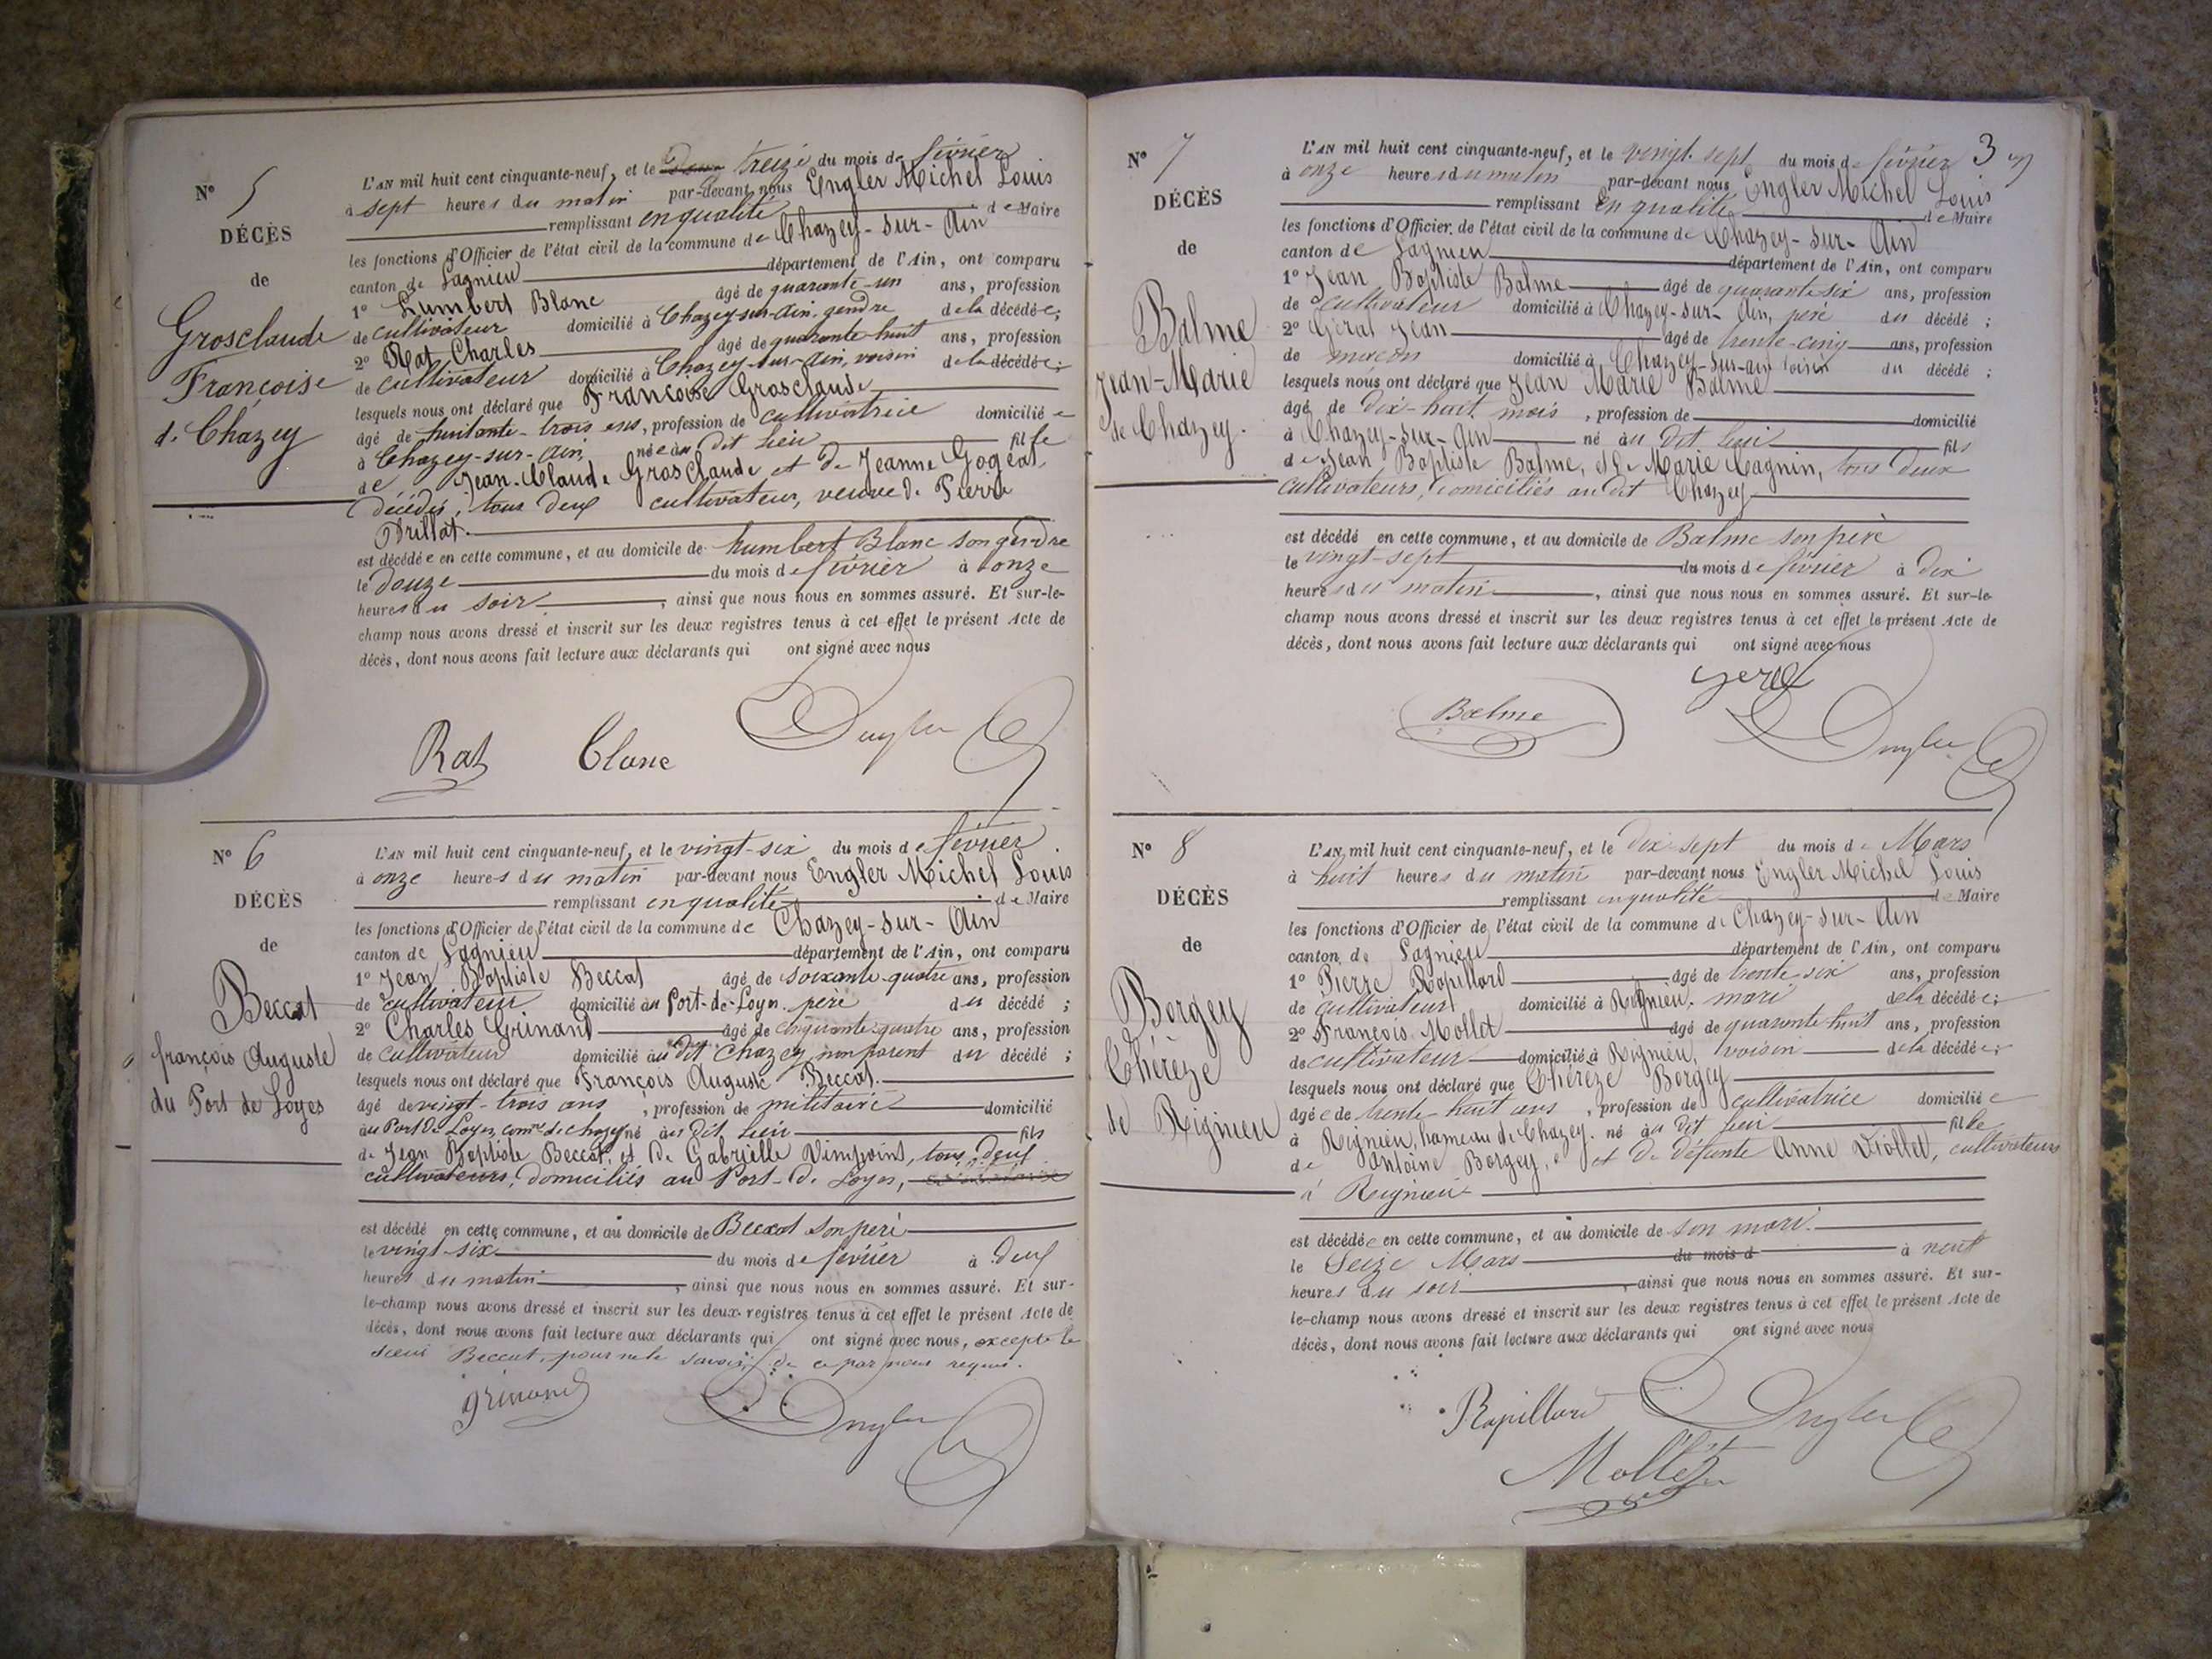 N° 5
DÉCÈS
de
Grosclaude
Françoise
de Chazey
L'AN mil huit cent cinquante-neuf, et le treize du mois de février
à sept heures du matin par-devant nous Engler Michel Louis
remplissant en qualité de Maire
les fonctions d'Officier de l'état civil de la commune de Chazey-sur-Ain
canton de Lagnieu département de l'Ain, ont comparu
1° Lumbert Blanc âgé de quarante-un ans, profession
de cultivateur domicilié à Chazey-sur-Ain, gendre de la décédée;
2° Rat Charles âgé de quarante-huit ans, profession
de cultivateur domicilié à Chazey-sur-Ain, voisin de la décédée;
lesquels nous ont déclaré que Françoise Grosclaude
âgé de huitante-trois ans, profession de cultivatrice domiciliée
à Chazey-sur-Ain, née au dit lieu fille
de Jean-Claude Grosclaude et de Jeanne Gogeat,
décédés, tous deux cultivateur, veuve de Pierre
Trillat.
est décédée en cette commune, et au domicile de humbert Blanc son gendre
le douze du mois de février à onze
heures du soir, ainsi que nous nous en sommes assuré. Et sur-le-
champ nous avons dressé et inscrit sur les deux registres tenus à cet effet le présent Acte de
décès, dont nous avons fait lecture aux déclarants qui ont signé avec nous
Rat Blanc Engler
N° 6
DÉCÈS
de
Beccat
françois Auguste
du Port de Loyes
L'AN mil huit cent cinquante-neuf, et le vingt-six du mois de février
à onze heures du matin par-devant nous Engler Michel Louis
remplissant en qualité de Maire
les fonctions d'Officier de l'état civil de la commune de Chazey-sur-Ain
canton de Lagnieu département de l'Ain, ont comparu
1° Jean Baptiste Beccat âgé de soixante-quatre ans, profession
de cultivateur domicilié au Port-de-Loyes, père du décédé;
2° Charles Grinand âgé de cinquante-quatre ans, profession
de cultivateur domicilié au dit Chazey, non parent du décédé;
lesquels nous ont déclaré que François Auguste Beccat.
âgé de vingt-trois ans, profession de militaire domicilié
au Port de Loyes, comne de chazey né au dit lieu fils
de Jean Baptiste Beccat, et de Gabrielle Vimpoint, tous deux
cultivateurs, domiciliés au Port-de Loyes,
est décédé en cette commune, et au domicile de Beccat son père
le vingt-six du mois de février à deux
heures du matin, ainsi que nous nous en sommes assuré. Et sur-
le-champ nous avons dressé et inscrit sur les deux registres tenus à cet effet le présent Acte de
décès, dont nous avons fait lecture aux déclarants qui ont signé avec nous, excepté le
sieur Beccat, pour ne le savoir, de ce par nous requis.
grinand Engler
3
N° 7
DÉCÈS
de
Balme
Jean-Marie
de Chazey.
L'AN mil huit cent cinquante-neuf, et le vingt-sept du mois de février
à onze heures du matin par-devant nous Engler Michel Louis
remplissant en qualité de Maire
les fonctions d'Officier de l'état civil de la commune de Chazey-sur-Ain
canton de Lagnieu département de l'Ain, ont comparu
1° Jean Baptiste Balme âgé de quarante six ans, profession
de cultivateur domicilié à Chazey-sur-Ain, père du décédé;
2° Géral Jean âgé de trente-cinq ans, profession
de maçon domicilié à Chazey-sur-ain voisin du décédé;
lesquels nous ont déclaré que Jean Marie Balme
âgé de dix-huit mois, profession de domicilié
à Chazey-sur-Ain né au dit lieu fils
de Jean Baptiste Balme, et de Marie Cagnin, tous deux
cultivateurs, domiciliés au dit Chazey
est décédé en cette commune, et au domicile de Balme son père
le vingt-sept du mois de février à dix
heures du matin, ainsi que nous nous en sommes assuré. Et sur-le-
champ nous avons dressé et inscrit sur les deux registres tenus à cet effet le présent Acte de
décès, dont nous avons fait lecture aux déclarants qui ont signé avec nous
Balme Engler
N° 8
DÉCÈS
de
Borgey
Thérèze
de Rignieu
L'AN mil huit cent cinquante-neuf, et le dix-sept du mois de Mars
à huit heures du matin par-devant nous Engler Michel Louis
remplissant en qualité de Maire
les fonctions d'Officier de l'état civil de la commune de Chazey-sur-Ain
canton de Lagnieu département de l'Ain, ont comparu
1° Pierre Rapillard âgé de trente-six ans, profession
de cultivateur domicilié à Rignieu, mari de la décédée;
2° François Mollet âgé de quarante huit ans, profession
de cultivateur domicilié à Rignieu, voisin de la décédée;
lesquels nous ont déclaré que Thérèze Borgey
âgée de trente-huit ans, profession de cultivatrice domiciliée
à Rignieu, hameau de Chazey. né au dit lieu fille
de Antoine Borgey, et de défunte Anne Viollet, cultivateurs
à Rignieu
est décédée en cette commune, et au domicile de son mari.
le Seize Mars du mois d à neuf
heures du soir, ainsi que nous nous en sommes assuré. Et sur-
le-champ nous avons dressé et inscrit sur les deux registres tenus à cet effet le présent Acte de
décès, dont nous avons fait lecture aux déclarants qui ont signé avec nous
Rapillard Engler
Mollet